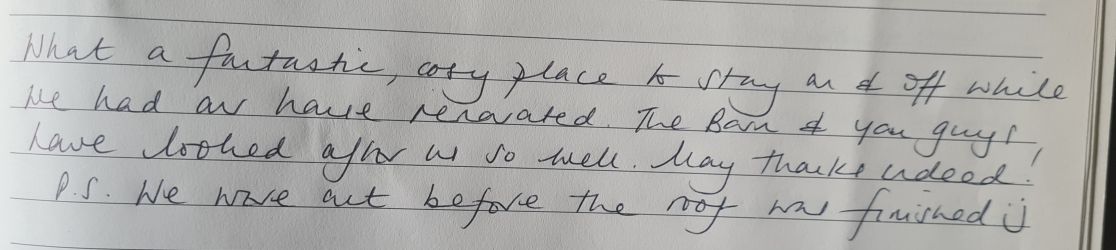 What a fantastic, cosy place to stay on & off while
we had our house renovated. The Barn & you guys
have looked after us so well. Many thanks indeed!
P.S. We were out before the roof was finished :)